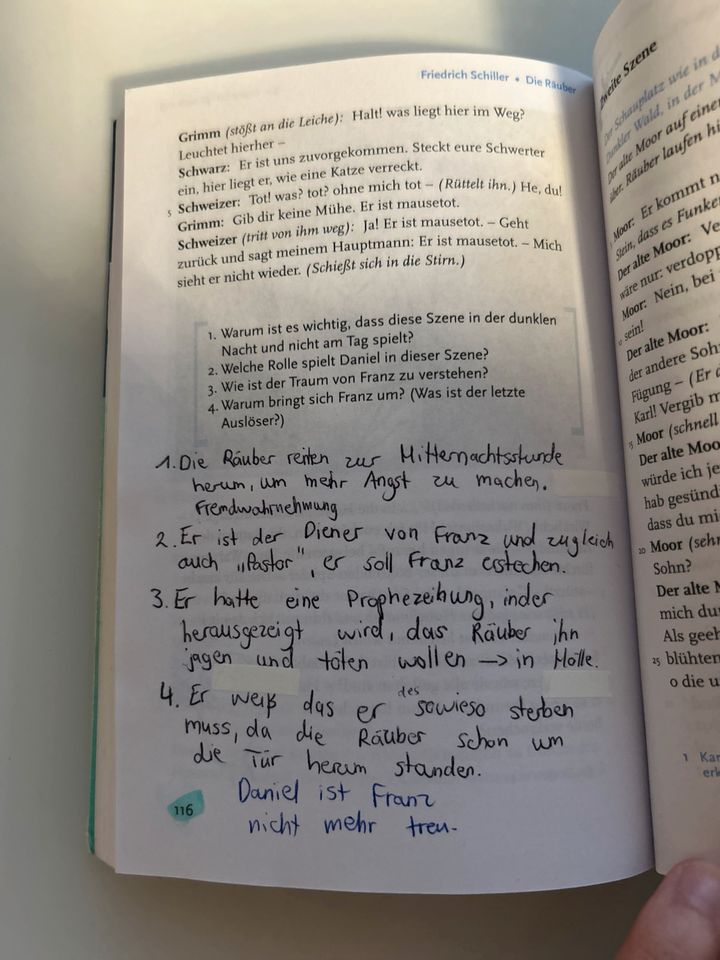 Friedrich Schiller • Die Räuber
Grimm (stößt an die Leiche): Halt! was liegt hier im Weg?
Leuchtet hierher –
Schwarz: Er ist uns zuvorgekommen. Steckt eure Schwerter
ein, hier liegt er, wie eine Katze verreckt.
5 Schweizer: Tot! was? tot? ohne mich tot – (Rüttelt ihn.) He, du!
Grimm: Gib dir keine Mühe. Er ist mausetot.
Schweizer (tritt von ihm weg): Ja! Er ist mausetot. – Geht
zurück und sagt meinem Hauptmann: Er ist mausetot. – Mich
sieht er nicht wieder. (Schießt sich in die Stirn.)
1. Warum ist es wichtig, dass diese Szene in der dunklen
Nacht und nicht am Tag spielt?
2. Welche Rolle spielt Daniel in dieser Szene?
3. Wie ist der Traum von Franz zu verstehen?
4. Warum bringt sich Franz um? (Was ist der letzte
Auslöser?)
1. Die Räuber reiten zur Mitternachtsstunde
herum, um mehr Angst zu machen.
Fremdwahrnehmung
2. Er ist der Diener von Franz und zugleich
auch „Pastor", er soll Franz erstechen.
3. Er hatte eine Prophezeihung, inder
herausgezeigt wird, das Räuber ihn
jagen und töten wollen → in Hölle.
4. Er weiß das er des sowieso sterben
muss, da die Räuber schon um
die Tür herum standen.
Daniel ist Franz
nicht mehr treu.
116
Zweite Szene
Der Schauplatz wie in d
Dunkler Wald, in der M
Der alte Moor auf einer
über. Räuber laufen hi
Moor: Er kommt n
Stein, dass es Funke
Der alte Moor: Ve
wäre nur: verdopp
Moor: Nein, bei
10 sein!
Der alte Moor:
der andere Soh
Fügung – (Er d
Karl! Vergib m
15 Moor (schnell
Der alte Moo
würde ich je
hab gesündi
dass du mi
20 Moor (sehr
Sohn?
Der alte M
mich du
Als geeh
25 blühten
o die u
1 Kar
erk